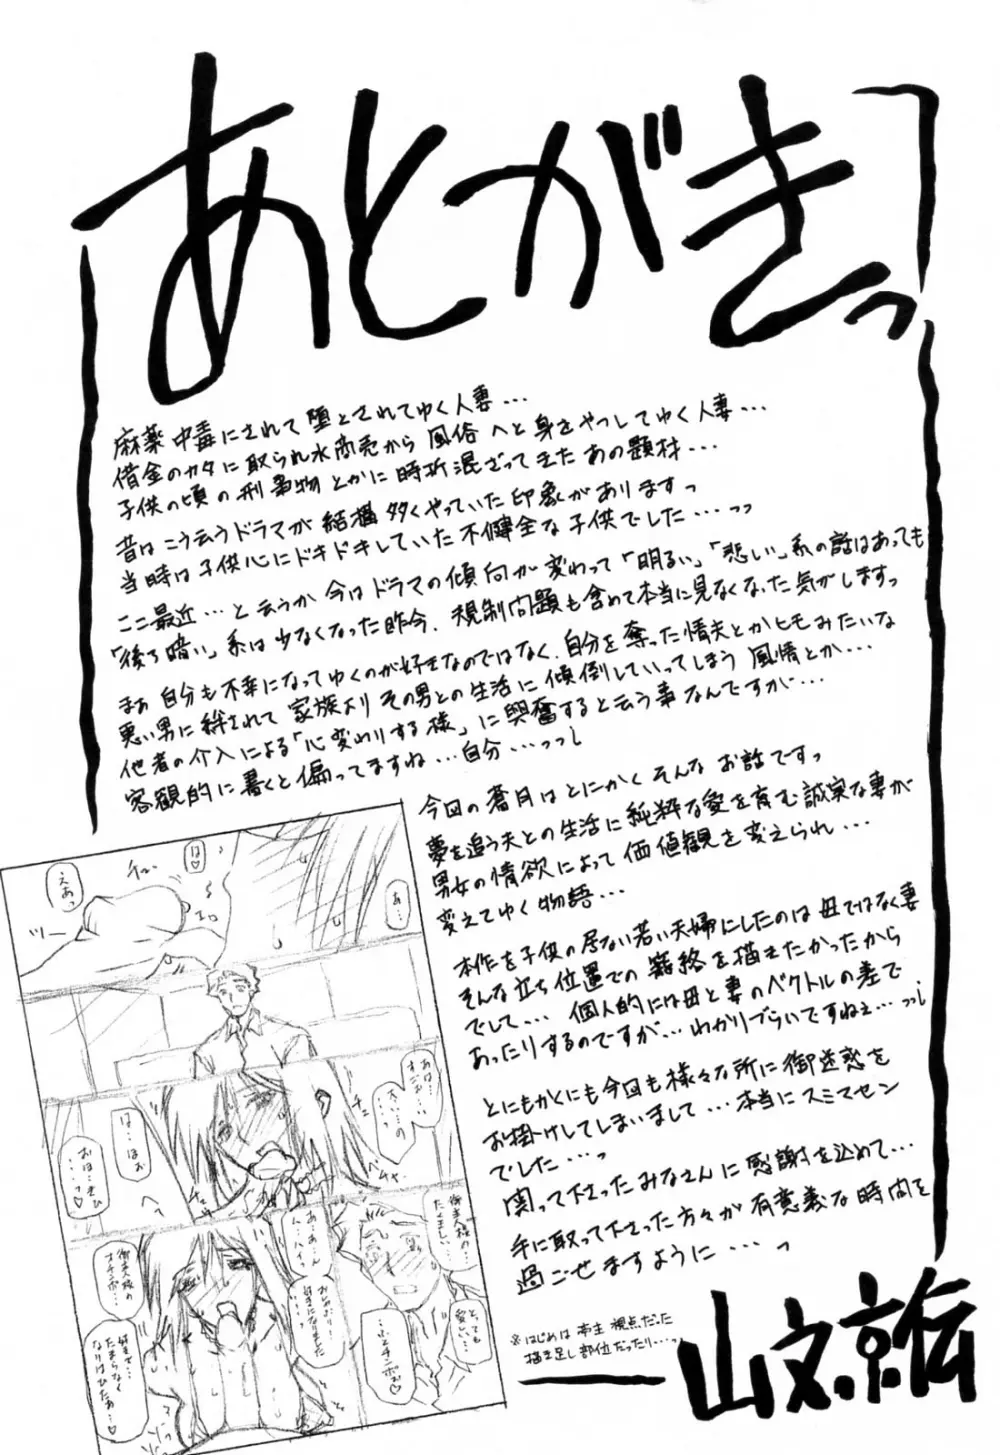 あとがきっ
麻薬中毒にされて堕とされてゆく人妻...
借金のカタに取られ水商売から風俗へと身をやつしてゆく人妻...
子供の頃の刑事物とかに時折混ざってきたあの題材...
昔はこう云うドラマが結構多くやっていた印象がありますっ
当時は子供心にドキドキしていた不健全な子供でした...っっ
ここ最近...と云うか今はドラマの傾向が変わって「明るい」「悲しい」系の話はあっても
「後ろ暗い」系は少なくなった昨今、規制問題も含めて本当に見なくなった気がしますっ
まぁ自分も不幸になってゆくのが好きなのではなく、自分を奪った情夫とかヒモみたいな
悪い男に絆されて家族よりその男との生活に傾倒していってしまう風情とか...
他者の介入による「心変わりする様」に興奮すると云う事なんですが...
客観的に書くと偏ってますね...自分...っっ
今回の蒼月はとにかくそんなお話ですっ
夢を追う夫との生活に純粋な愛を育む誠実な妻が
男女の情欲によって価値観を変えられ...
変えてゆく物語...
本作を子供の居ない若い夫婦にしたのは母ではなく妻
そんな立ち位置での籠絡を描きたかったから
でして... 個人的には母と妻のベクトルの差で
あったりするのですが...わかりづらいですねぇ...っっ
とにもかくにも今回も様々な所に御迷惑を
お掛けしてしまいまして...本当にスミマセン
でした...っ
関って下さったみなさんに感謝を込めて...
手に取って下さった方々が有意義な時間を
過ごせますように...っ
※はじめは亭主視点だった
描き足し部位だったり...っ
山文京伝
えあっ
は♡
ツー
あ...
は...ほお
おほ...きひ
...っ♡
御主人様の
たくましい...
とっても
愛しい...
御主人様の
オチンポ...
好きで...
たまらなく
なりはひたあ...♡